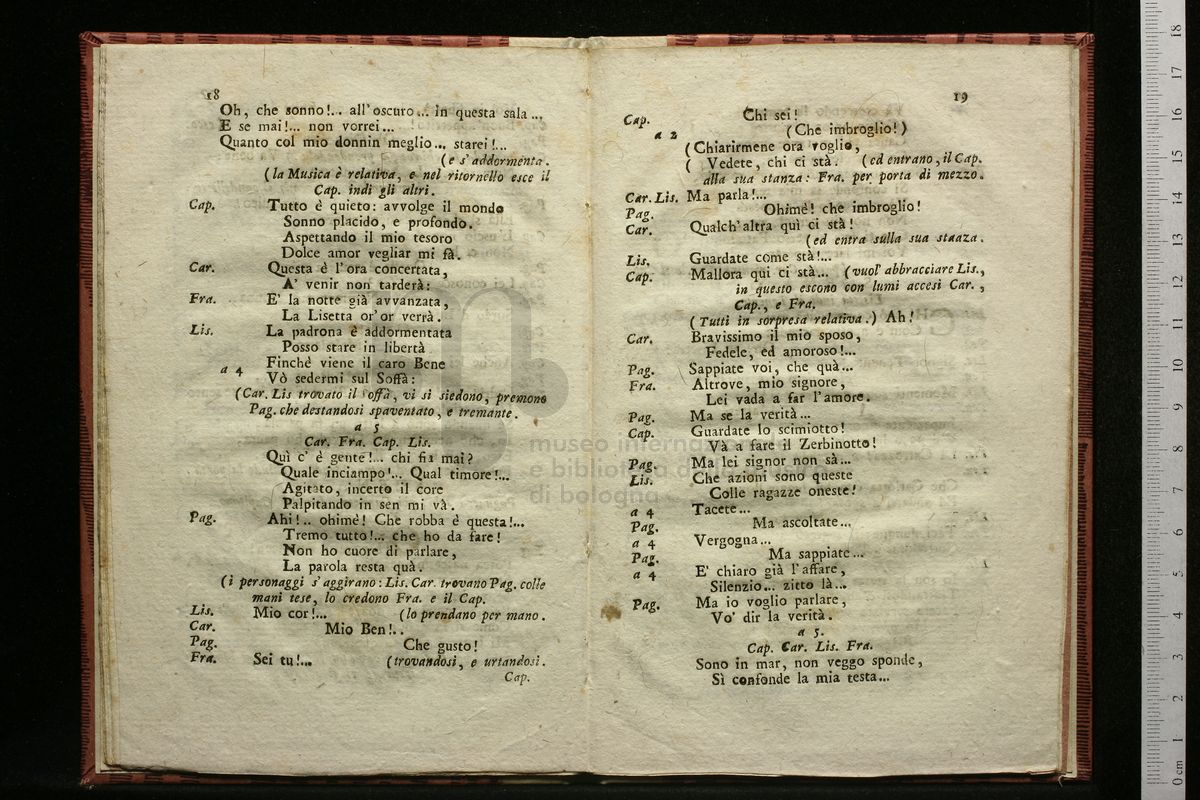 18
Oh, che sonno!... all'oscuro... in questa sala...
E se mai!... non vorrei...
Quanto col mio donnin meglio... starei!...
(e s'addormenta.
(la Musica è relativa, e nel ritornello esce il
Cap. indi gli altri.
Cap. Tutto è quieto: avvolge il mondo
Sonno placido, e profondo.
Aspettando il mio tesoro
Dolce amor vegliar mi fà.
Car. Questa è l'ora concertata,
A' venir non tarderà:
Fra. E' la notte già avvanzata,
La Lisetta or'or verrà.
Lis. La padrona è addormentata
Posso stare in libertà
Finchè viene il caro Bene
a 4 Vò sedermi sul Soffà:
(Car. Lis trovato il soffà, vi si siedono, premono
Pag. che destandosi spaventato, e tremante.
a 5
Car. Fra. Cap. Lis.
Quì c'è gente!... chi fia mai?
Quale inciampo!... Qual timore!...
Agitato, incerto il core
Palpitando in sen mi và.
Pag. Ahi!.. ohimè! Che robba è questa!...
Tremo tutto!... che ho da fare!
Non ho cuore di parlare,
La parola resta quà.
(i personaggi s'aggirano: Lis. Car. trovano Pag. colle
mani tese, lo credono Fra. e il Cap.
Lis. Mio cor!... (lo prendano per mano.
Car. Mio Ben!..
Pag. Che gusto!
Fra. Sei tu!... (trovandosi, e urtandosi.
Cap.
19
Cap. Chi sei!
a 2 (Che imbroglio!)
(Chiarirmene ora voglio,
( Vedete, chi ci stà. (ed entrano, il Cap.
alla sua stanza: Fra. per porta di mezzo.
Car. Lis. Ma parla!...
Pag. Ohimè! che imbroglio!
Car. Qualch'altra quì ci stà!
(ed entra sulla sua stanza.
Lis. Guardate come stà!...
Cap. Mallora qui ci stà... (vuol' abbracciare Lis.,
in questo escono con lumi accesi Car.,
Cap., e Fra.
(Tutti in sorpresa relativa.) Ah!
Car. Bravissimo il mio sposo,
Fedele, ed amoroso!...
Pag. Sappiate voi, che quà...
Fra. Altrove, mio signore,
Lei vada a far l'amore.
Pag. Ma se la verità...
Cap. Guardate lo scimiotto!
Và a fare il Zerbinotto!
Pag. Ma lei signor non sà...
Lis. Che azioni sono queste
Colle ragazze oneste!
a 4 Tacete...
Pag. Ma ascoltate...
a 4 Vergogna...
Pag. Ma sappiate...
a 4 E' chiaro già l'affare,
Silenzio... zitto là...
Pag. Ma io voglio parlare,
Vo' dir la verità.
a 5.
Cap. Car. Lis. Fra.
Sono in mar, non veggo sponde,
Sì confonde la mia testa...
museo internazionale
e biblioteca della musica
di bologna
0 cm 1 2 3 4 5 6 7 8 9 10 11 12 13 14 15 16 17 18